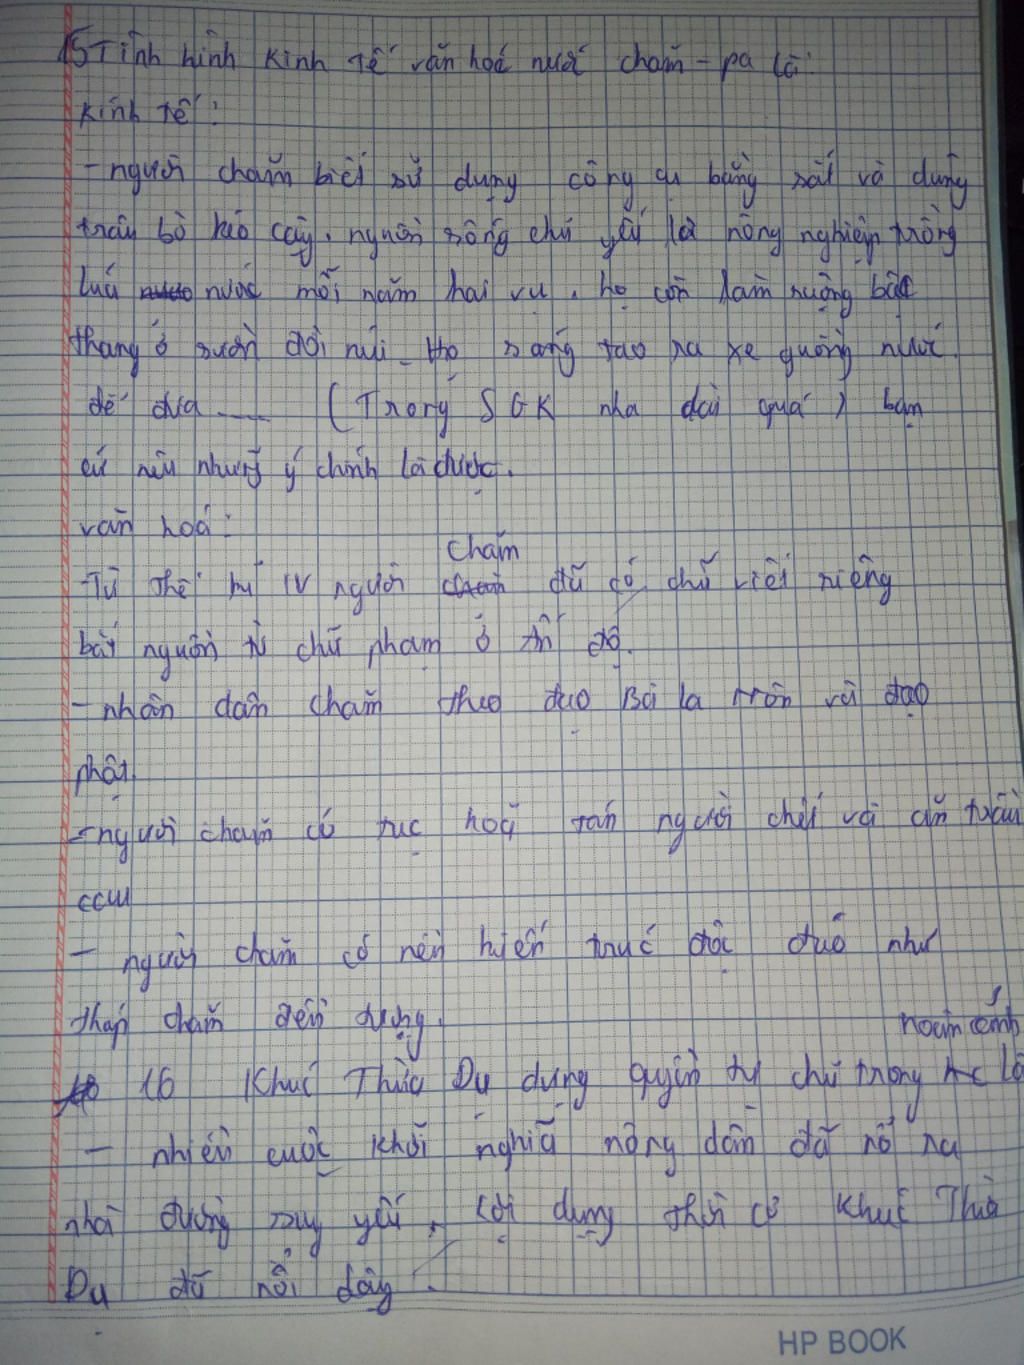 15 Tình hình kinh tế văn hoá nước chăm-pa là:
kinh tế:
- người chăm biết sử dụng công cụ bằng sắt và dùng
trâu bò kéo cày, nguồn sống chủ yếu là nông nghiệp trồng
lúa nước mỗi năm hai vụ, họ còn làm ruộng bậc
thang ở sườn đồi núi. Họ sáng tạo ra xe guồng nước
để đưa .... (Trong SGK nha dài quá) bạn
cứ nêu những ý chính là được.
văn hoá:
chăm
-Từ thế kỉ IV người đã có chữ viết riêng
bắt nguồn từ chữ phạm ở ấn độ.
- nhân dân chăm theo đạo Bà la môn và đạo
phật.
- người chăm có tục hoả táng người chết và ăn trầu
cau
- người chăm có nền kiến trúc độc đáo như
tháp chăm đền tượng.
hoàn cảnh
16 Khúc Thừa Dụ dựng quyền tự chủ trong là
- nhiều cuộc khởi nghĩa nông dân đã nổ ra
nhà đường suy yếu, lợi dụng thời cơ Khúc Thừa
Dụ đã nổi dậy.
HP BOOK